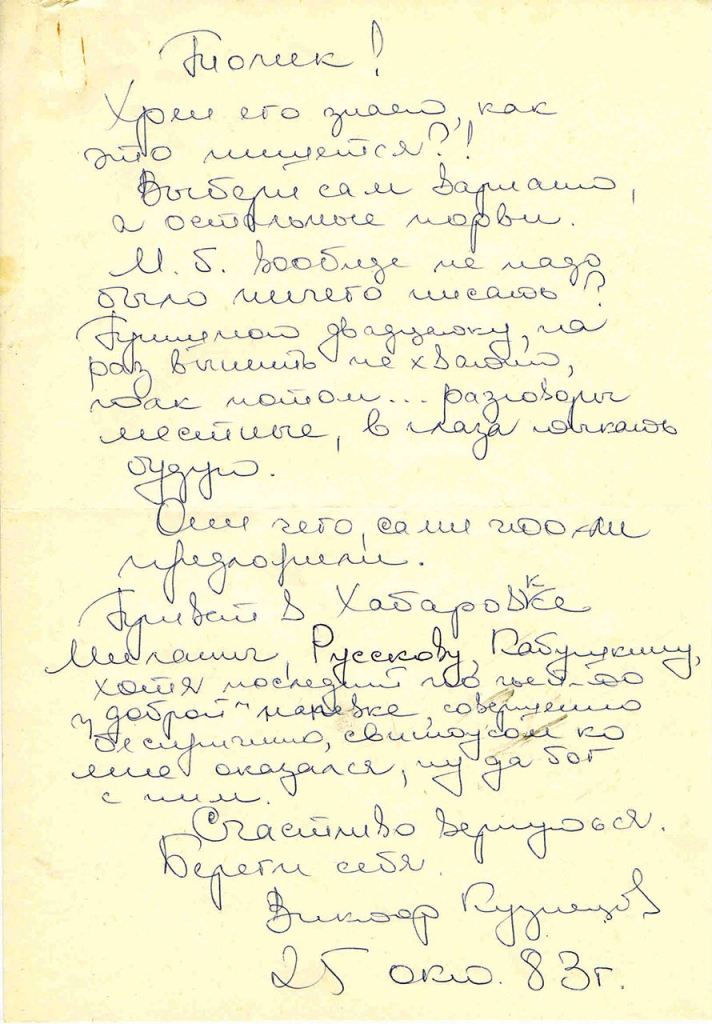 Толик!
Хрен его знает, как
это пишется?!
Выбери сам вариант,
а остальные порви.
М.б. вообще не надо
было ничего писать?
двадцатку, на
раз выпить не хватит,
так потом... разговоры
местные, в глаза тыкать
будут.
Они чего, сами что-ли
предложили.
Привет в Хабаровке
Милашич, Русскову, Кабушкину,
хотя последний по чьей-то
"доброй" наводке, совершенно
беспричинно, свинтусом ко
мне оказался, ну да бог
с ним.
Счастливо вернуться.
Береги себя.
Виктор Кузнецов
25 окт. 83г.